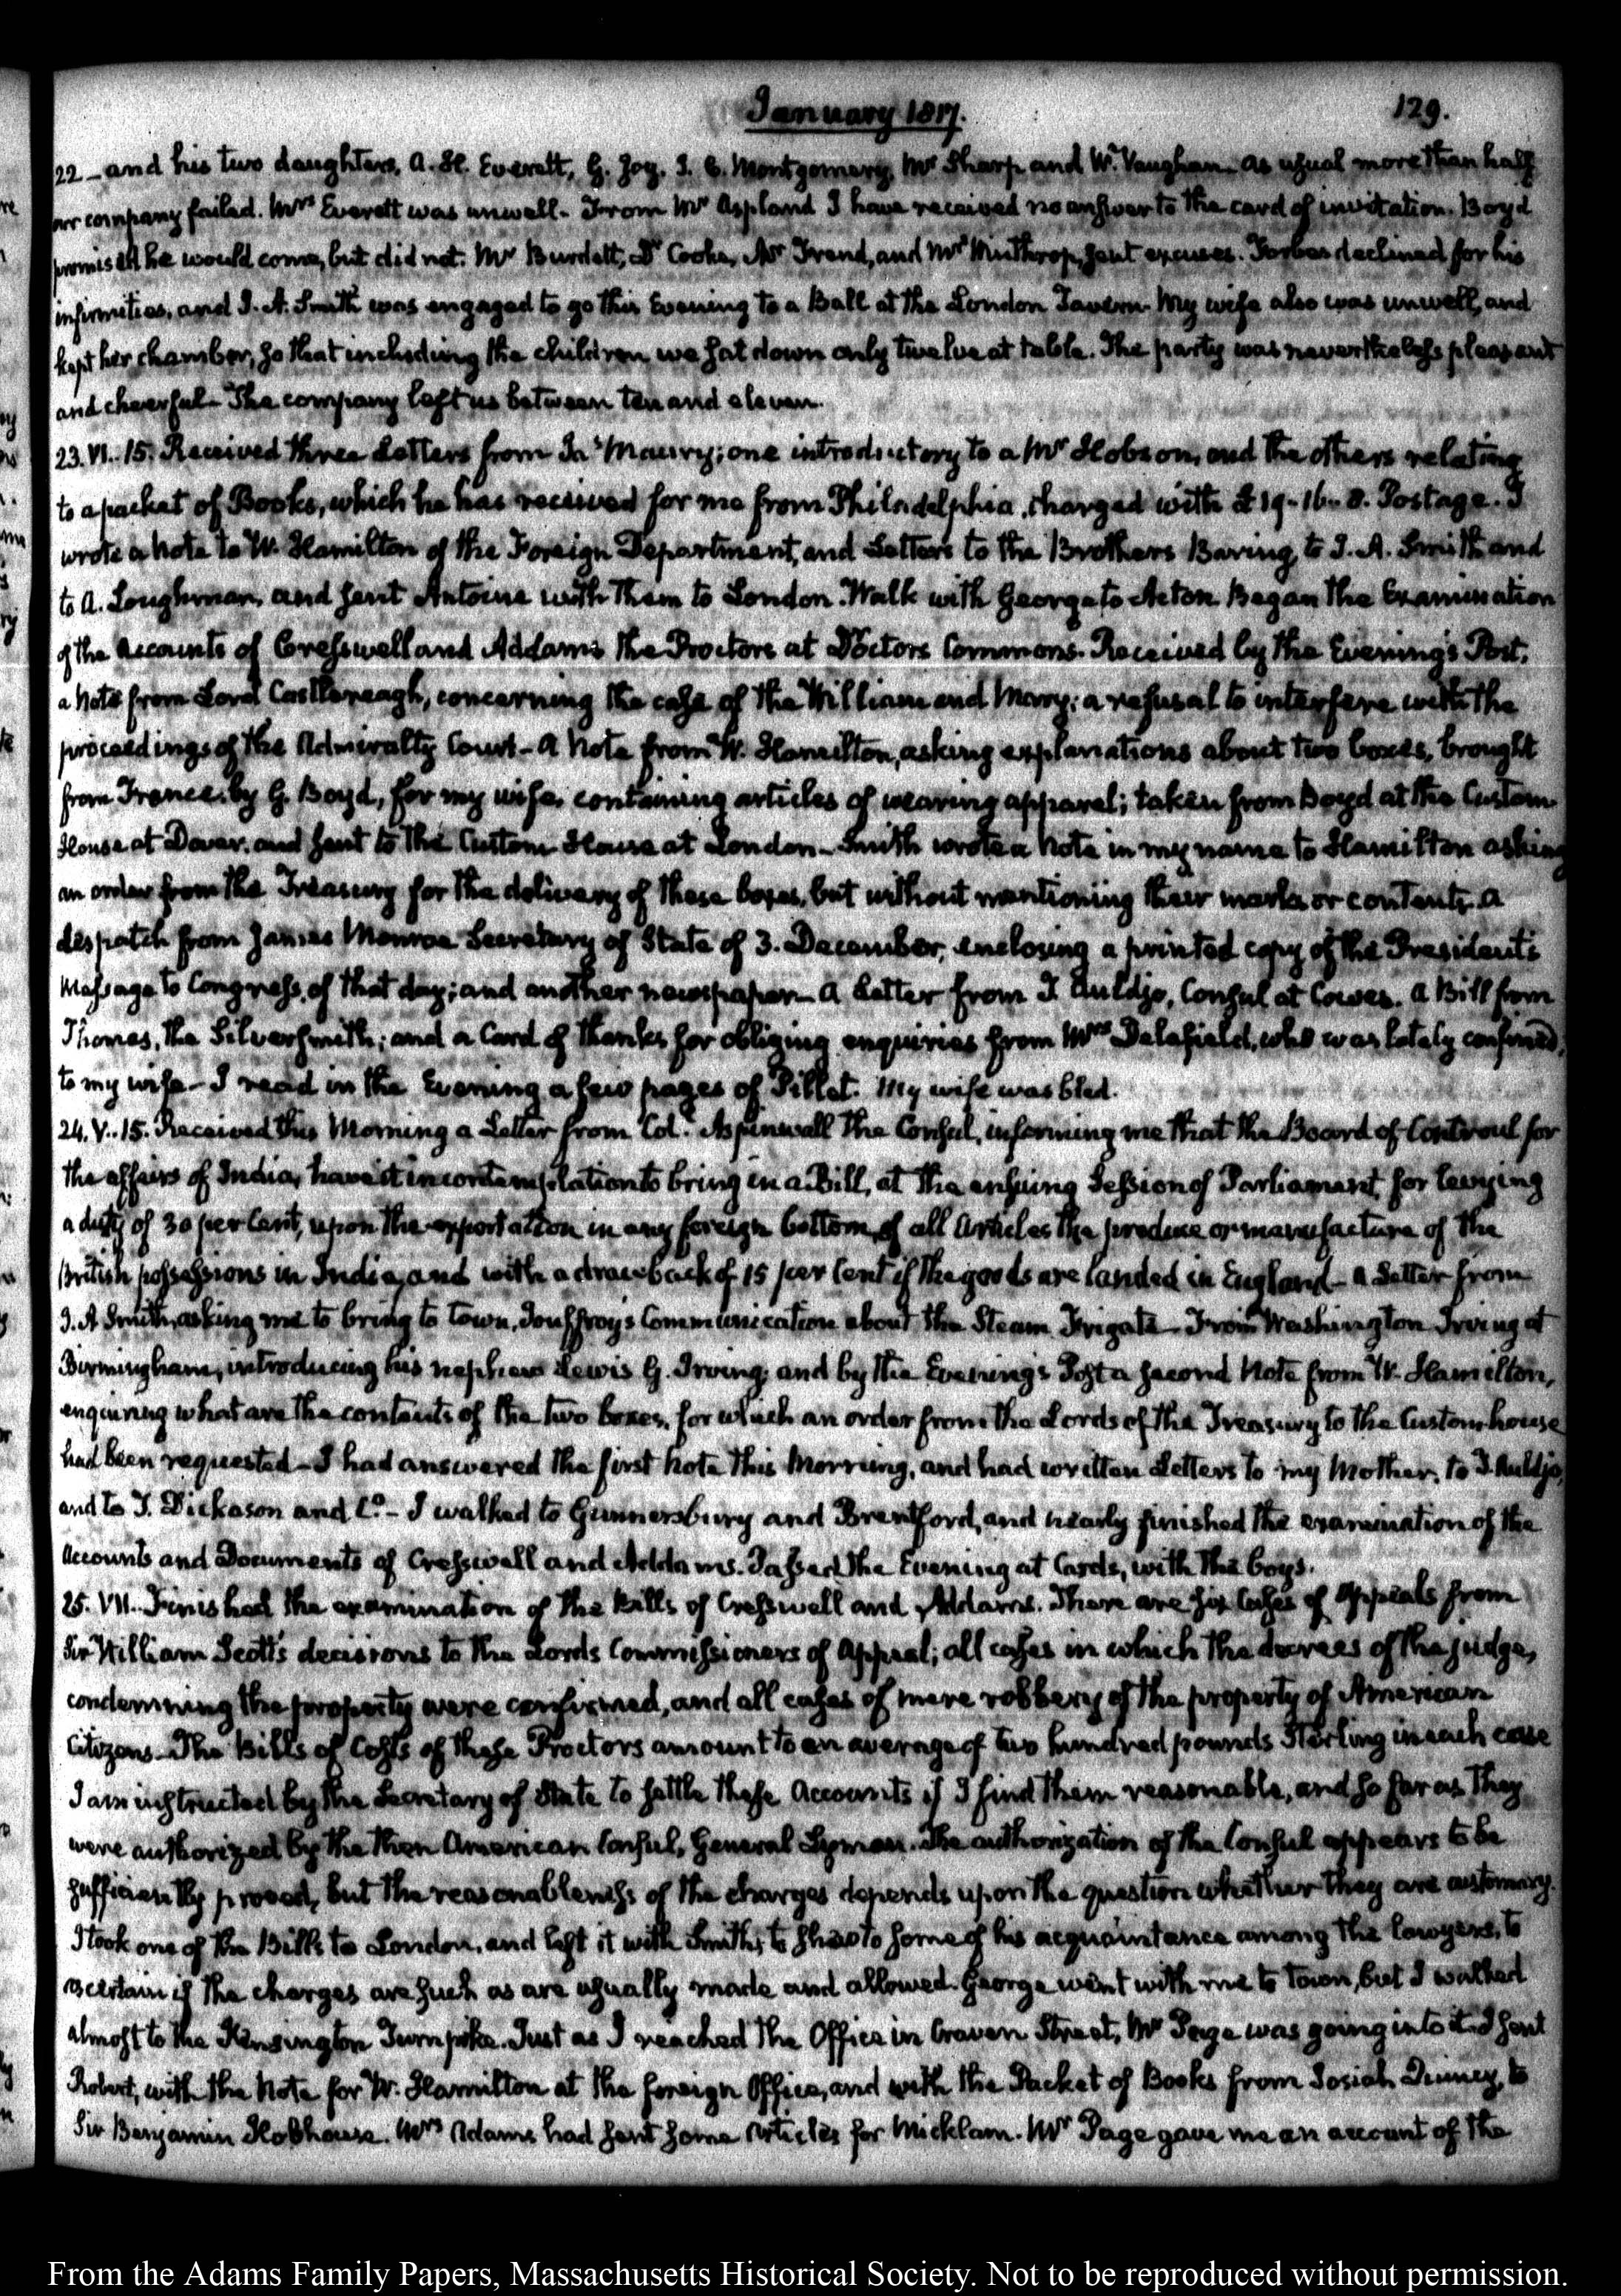 January 1817.
129.
22 - and his two daughters, A. H. Everett, G. Joy, J. C. Montgomery, Mr Sharp and W. Vaughan. As usual more than half
our company failed. Mrs Everett was unwell. From Mr Aspland I have received no answer to the card of invitation. Boyd
promised he would come, but did not. Mr Burdett, Dr Cooke, Mr Frend, and Mrs Winthrop, sent excuses. Forbes declined for his
infirmities, and J. A. Smith was engaged to go this Evening to a Ball at the London Tavern. My wife also was unwell, and
kept her chamber, so that including the children we sat down only twelve at table. The party was nevertheless pleasant
and cheerful. The company left us between ten and eleven.
23. VI..15. Received three Letters from Js Maury; one introductory to a Mr Hobson, and the others relating
to a packet of Books, which he has received for me from Philadelphia, charged with £19-16..8. Postage. I
wrote a Note to W. Hamilton of the Foreign Department, and Letters to the Brothers Baring, to J. A. Smith and
to A. Loughman, and sent Antoine with them to London. Walk with George to Acton. Began the Examination
of the Accounts of Cresswell and Addams the Proctors at Doctors Commons. Received by the Evening's Post,
a Note from Lord Castlereagh, concerning the case of the William and Mary; a refusal to interfere with the
proceedings of the Admiralty Court - A Note from W. Hamilton, asking explanations about two boxes, brought
from France, by G. Boyd, for my wife, containing articles of wearing apparel; taken from Boyd at the Custom-
House at Dover, and sent to the Custom House at London - Smith wrote a Note in my name to Hamilton asking
an order from the Treasury for the delivery of these boxes, but without mentioning their marks or contents. A
despatch from James Monroe Secretary of State of 3. December, enclosing a printed copy of the President's
Message to Congress, of that day; and another newspaper - A Letter from J. Auldjo, Consul at Cowes. A Bill from
Thomas, the Silversmith; and a Card of thanks for obliging enquiries from Mrs Delafield, who was lately confined,
to my wife - I read in the Evening a few pages of Pillet. My wife was bled.
24. V..15. Received this Morning a Letter from Col. Aspinwall the Consul, informing me that the Board of Controul for
the affairs of India, have it in contemplation to bring in a Bill, at the ensuing Session of Parliament, for levying
a duty of 30 per Cent, upon the exportation in any foreign bottom, of all Articles the produce or manufacture of the
British possessions in India, and with a drawback of 15 per Cent if the goods are landed in England - A Letter from
J. A Smith, asking me to bring to town, Jouffroy's Communication about the Steam Frigate - From Washington Irving at
Birmingham, introducing his nephew Lewis G. Irving; and by the Evening's Post a second Note from W. Hamilton,
enquiring what are the contents of the two boxes, for which an order from the Lords of the Treasury to the Custom-house
had been requested - I had answered the first Note this Morning, and had written Letters to my Mother, to J. Auldjo,
and to T. Dickason and Co. - I walked to Gunnersbury and Brentford, and nearly finished the examination of the
Accounts and Documents of Cresswell and Addams. Passed the Evening at Cards, with the boys.
25. VII.. Finished the examination of the Bills of Cresswell and Addams. There are six Cases of Appeals from
Sir William Scott's decisions to the Lords Commissioners of Appeal; all cases in which the decrees of the judge,
condemning the property were confirmed, and all cases of mere robbery of the property of American
Citizens - The Bills of Costs of these Proctors amount to an average of two hundred pounds Sterling in each case
I am instructed by the Secretary of State to settle these Accounts if I find them reasonable, and so far as they
were authorized by the then American Consul, General Lyman. The authorization of the Consul appears to be
sufficiently proved, but the reasonableness of the charges depends upon the question whether they are customary.
I took one of the Bills to London, and left it with Smith, to shew to some of his acquaintance among the lawyers, to
ascertain if the charges are such as are usually made and allowed. George went with me to town, but I walked
almost to the Kensington Turnpike. Just as I reached the Office in Craven Street, Mr Page was going into it. I sent
Robert, with the Note for W. Hamilton at the foreign Office, and with the Packet of Books from Josiah Quincy, to
Sir Benjamin Hobhouse. Mrs Adams had sent some articles for Micklam. Mr Page gave me an account of the
From the Adams Family Papers, Massachusetts Historical Society. Not to be reproduced without permission.